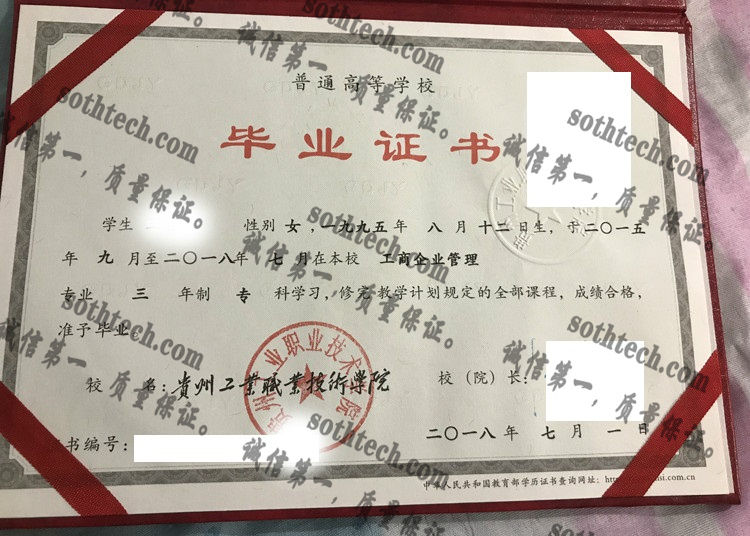 普通高等学校
毕业证书
学生 性别 女，一九九五年 八 月 十二日生，于二〇一五
年 九 月至二〇一八年 七 月在本校 工商企业管理
专业 三 年制 专 科学习，修完教学计划规定的全部课程，成绩合格，
准予毕业。
贵州工业职业技术学院
校 名：貴州工業職業技術學院 校（院）长：
书编号： 二〇一八年 七 月 一 日
中华人民共和国教育部学历证书查询网址：
sothtech.com
诚信第一，质量保证。
sothtech.com
诚信第一，质量保证。
sothtech.com
诚信第一，质量保证。
sothtech.com
诚信第一，质量保证。
sothtech.com
诚信第一，质量保证。
sothtech.com
诚信第一，质量保证。
sothtech.com
诚信第一，质量保证。